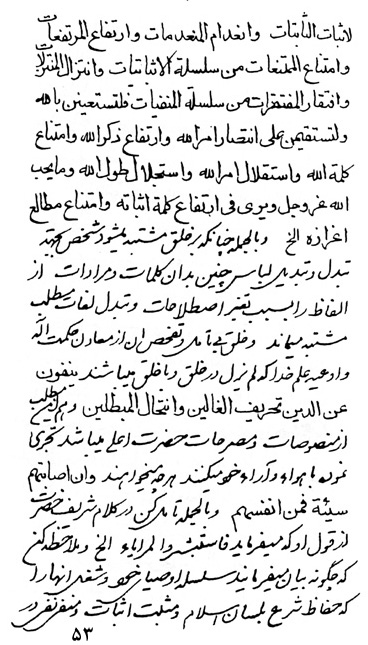 لاثبات الثابتات وانعدام المنعدمات وارتفاع المرتفعات
وامتناع الممتنعات من سلسلة الاثباتات وانتزال المنتزلات
وافتقار المفتقرات من سلسلة النفيات فلتستعينن بالله
ولتستقيمن على انتصار امرالله وارتفاع ذكرالله وامتناع
كلمة الله واستقلال امرالله واستجلال طول الله وما يحب
الله عزوجل ويرى فى ارتفاع كلمة اثباته وامتناع مطالع
اعزازه الخ وبالجمله چنانكه بر خلق مشتبه ميشود شخص بجهة
تبدل وتبديل لباس چنين بدان كلمات ومرادات از
الفاظ را بسبب تغير اصطلاحات وتبدل لغات مطلب
مشتبه ميماند وخلق بى تامل وتفحص ان از معادن حكمت الله
واوعيه علم خدا كه لم يزل در خلق وباخلق ميباشند ينفون
عن الدين تحريف الغالين وانتحال المبطلين وهم چنين مطلب
از منصوصات ومصرحات حضرت اعلى ميباشد تجرى
نموده باهواء وآراء خود ميكنند هرچه ميخواهند وان اصابتهم
سيئة فمن انفسهم وبالجمله تامل كن در كلام شريف حضرت
از قول او كه ميفرمايد فاستبشروا المراياء الخ وملاحظه كن
كه چگونه بيان ميفرمايند سلسله اوصياى خود وشهداى انها را
كه حفاظ شرع بلسان اسلام ومثبت اثبات ومنفى نفى در
۵۳